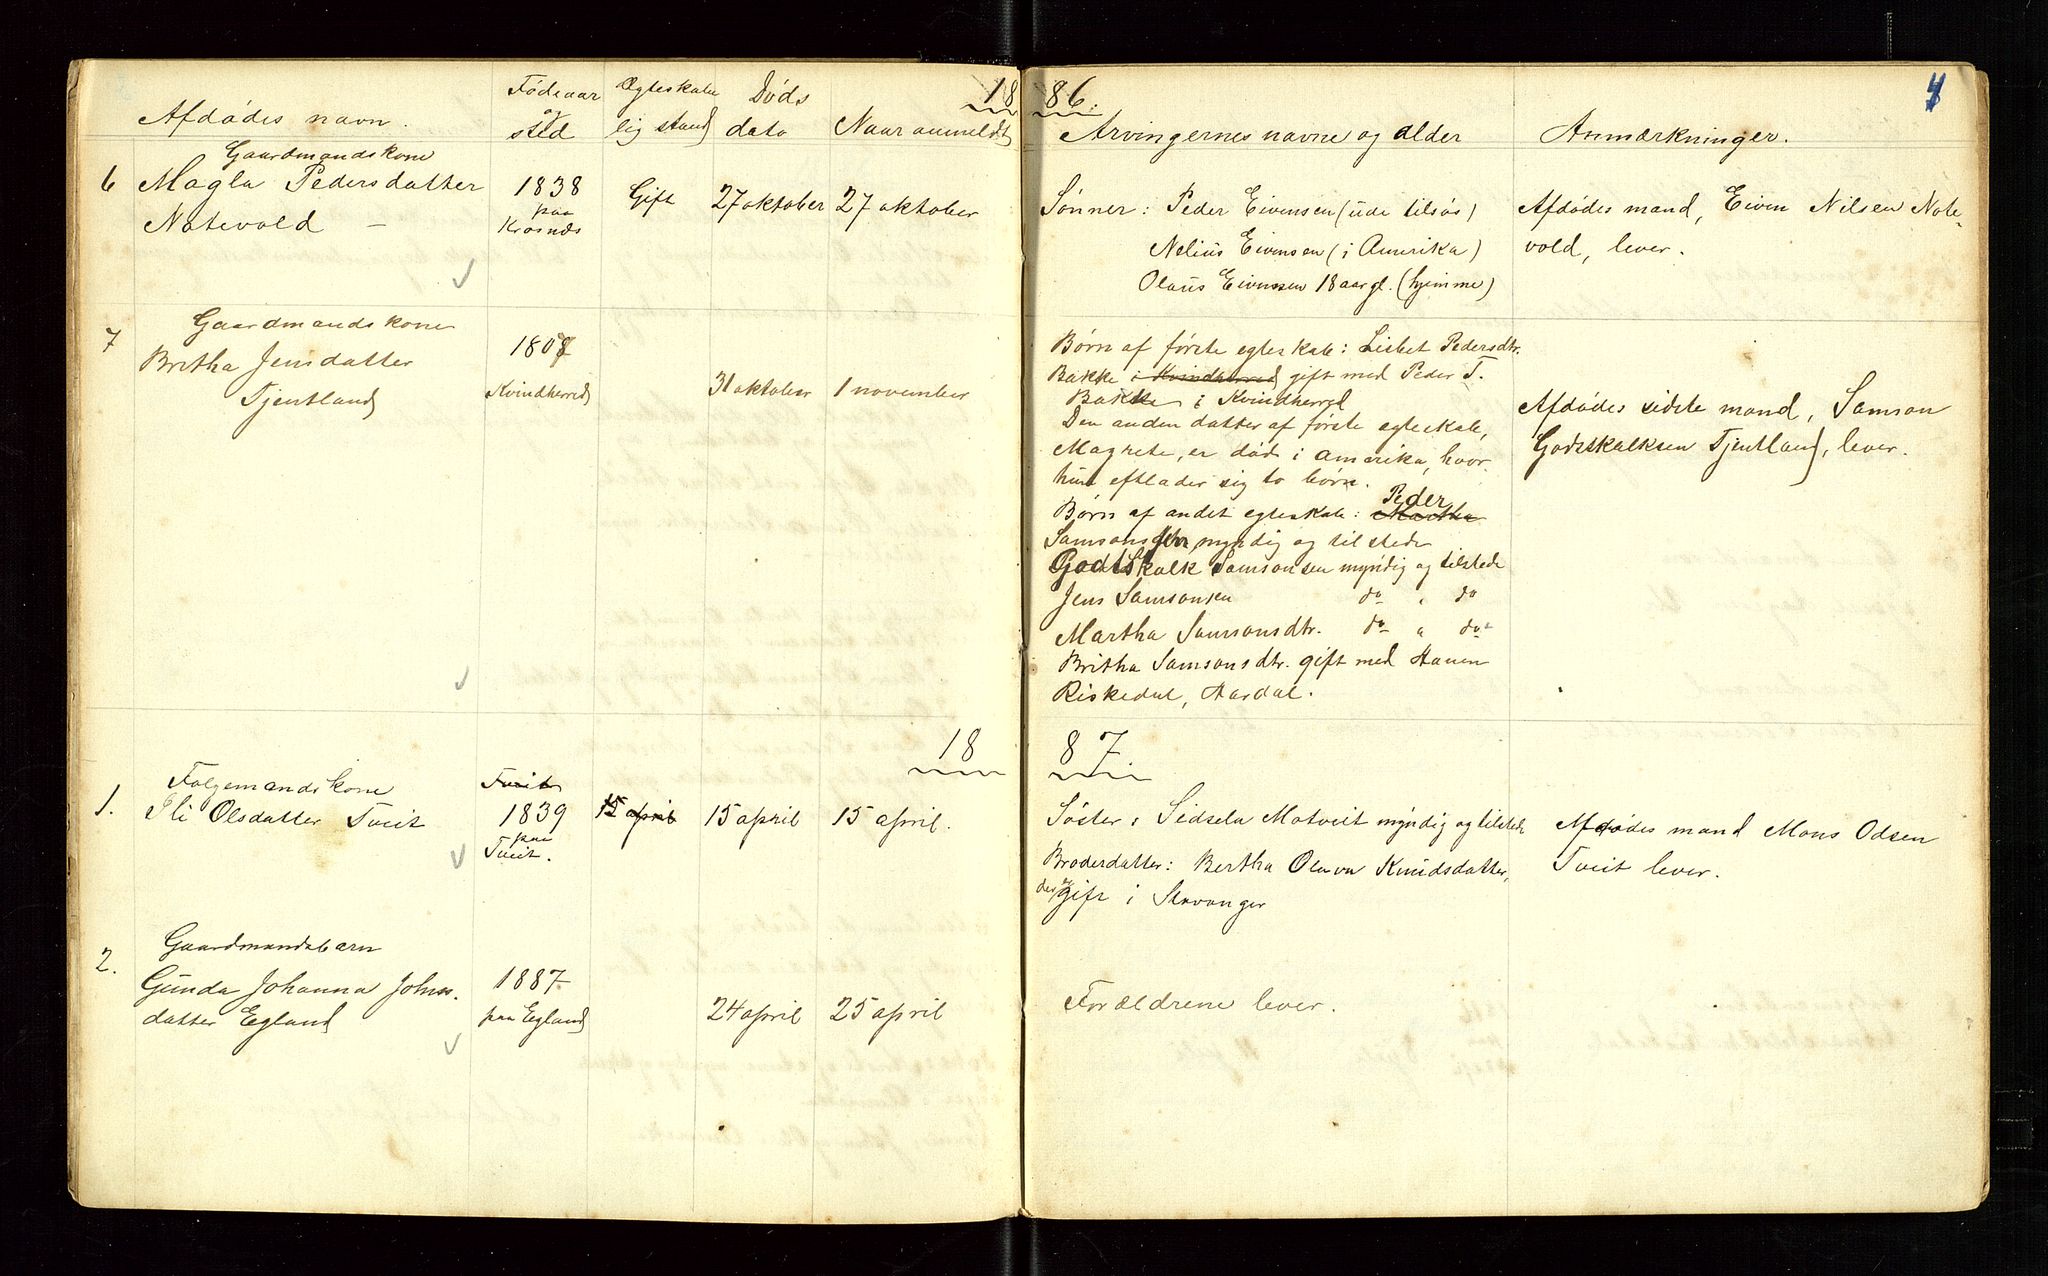 18 86.
4
Afdødes navn.
Fødeaar
og
sted
Ægteskabe
lig stand
Døds
dato
Naar anmeldt
Arvingernes navne og alder
Anmærkninger.
6
Gaardmandskone
Magla Pedersdatter
Notevold –
1838
paa
Krosnæs
Gift
27 oktober
27 oktober
Sønner: Peder Eivensen (ude tilsøs)
Nelius Eivensen (i Amerika)
Olaus Eivensen 18 aar gl. (hjemme)
Afdødes mand, Eiven Nilsen Note-
vold, lever.
7
Gaardmandskone
Britha Jensdatter
Tjentland
1807
Kvindherred
31 oktober
1 november
Børn af første egteskab: Lisbet Pedersdtr.
Bakke i Kvindherred gift med Peder T.
Bakke i Kvindherred
Den anden datter af første egteskab,
Magrete, er død i amerika, hvor
hun eftlader sig to børn.
Børn af andet egteskab: Martha Peder
Samsonsen myndig og tilstede
Godtskalk Samsonsen myndig og tilstede
Jens Samsonsen do " do
Martha Samsonsdtr. do " do
Britha Samsonsdtr. gift med Haven
Riskedal, Aardal.
Afdødes sidste mand, Samson
Godskalksen Tjentland, lever.
18 87.
1.
Folgemandskone
Sli Olsdatter Tveit
Tveit
1839
paa
Tveit.
15 april
15 april
15 april.
Søster: Sidsela Motveit myndig og tilstede
Broderdatter: Bertha Olava Knudsdatter,
der er gift i Stavanger
Afdødes mand Mons Odsen
Tveit lever.
2.
Gaardmandsbarn
Gunda Johanna Johns-
datter Egland
1887
paa Egland
24 april
25 april
Forældrene lever.